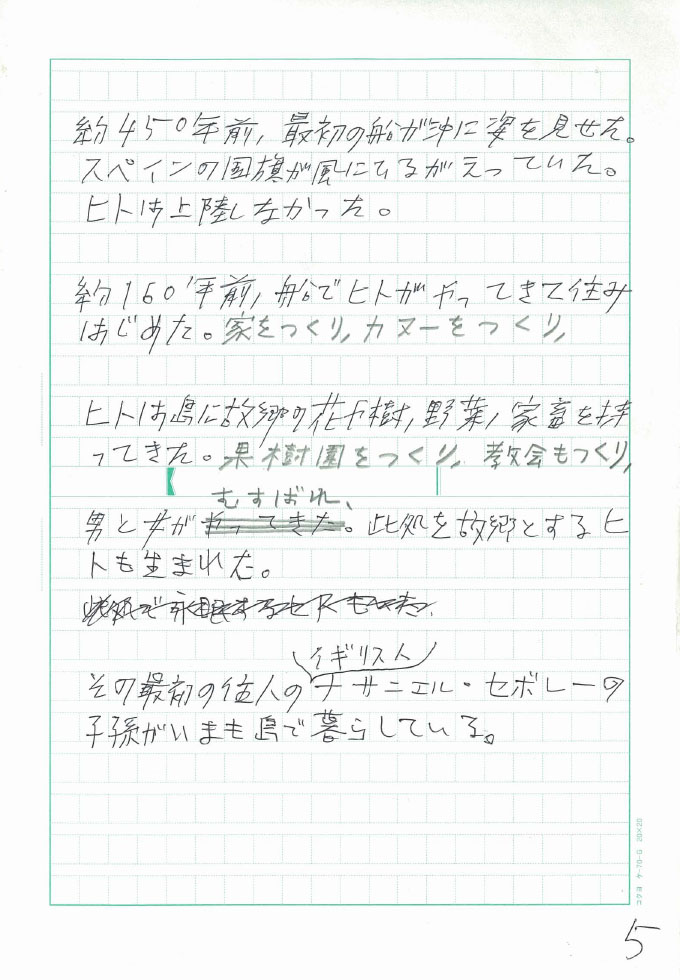 約450年前,最初の船が沖に姿を見せた。
スペインの国旗が風にひるがえっていた。
ヒトは上陸しなかった。
約160年前,船でヒトがやってきて住み
はじめた。家をつくり,カヌーをつくり,
ヒトは島に故郷の花や樹,野菜,家畜を持
ってきた。果樹園をつくり,教会もつくり,
むすばれ、
男と女がやってきた。此処を故郷とするヒ
トも生まれた。
イギリス人
その最初の住人のナサニエル・セボレーの
子孫がいまも島で暮らしている。
コクヨ ケ-70 20×20
5